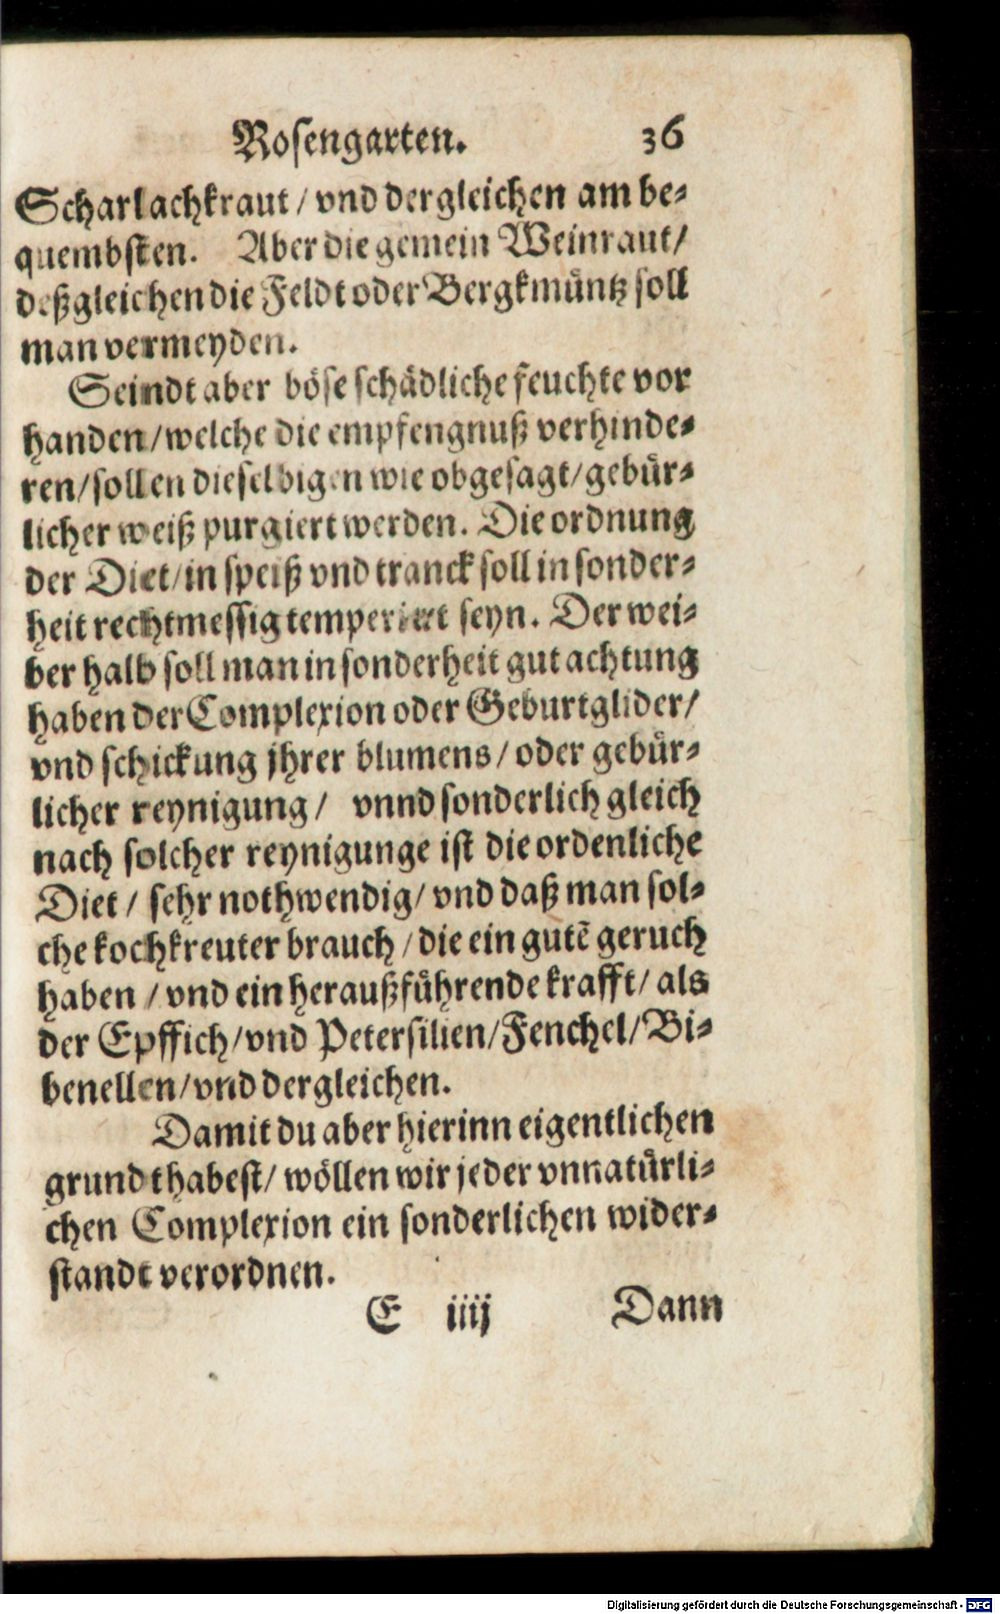 Rosengarten. 36
Scharlachkraut / vnd dergleichen am be-
quembsten. Aber die gemein Weinraut /
deßgleichen die Feldt oder Bergkmüntz soll
man vermeyden.
Seindt aber böse schädliche feuchte vor
handen / welche die empfengnuß verhinde-
ren / sollen dieselbigen wie obgesagt / gebür-
licher weiß purgiert werden. Die ordnung
der Diet / in speiß vnd tranck soll in sonder-
heit rechtmessig temperiert seyn. Der wei-
ber halb soll man in sonderheit gut achtung
haben der Complexion oder Geburtglider /
vnd schickung jhrer blumens / oder gebür-
licher reynigung / vnnd sonderlich gleich
nach solcher reynigunge ist die ordenliche
Diet / sehr nothwendig / vnd daß man sol-
che kochkreuter brauch / die ein gutẽ geruch
haben / vnd ein heraußführende krafft / als
der Epffich / vnd Petersilien / Fenchel / Bi-
benellen / vnd dergleichen.
Damit du aber hierinn eigentlichen
grundt habest / wöllen wir jeder vnnatürli-
chen Complexion ein sonderlichen wider-
standt verordnen.
E iiij Dann
Digitalisierung gefördert durch die Deutsche Forschungsgemeinschaft - DFG